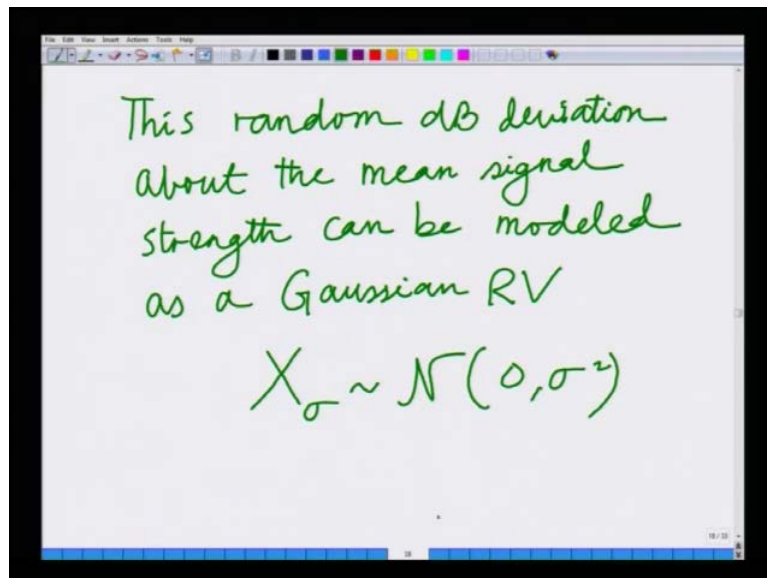 File Edit View Insert Actions Tools Help
This random dB deviation
about the mean signal
strength can be modeled
as a Gaussian RV
X_σ ~ N(0, σ²)
18